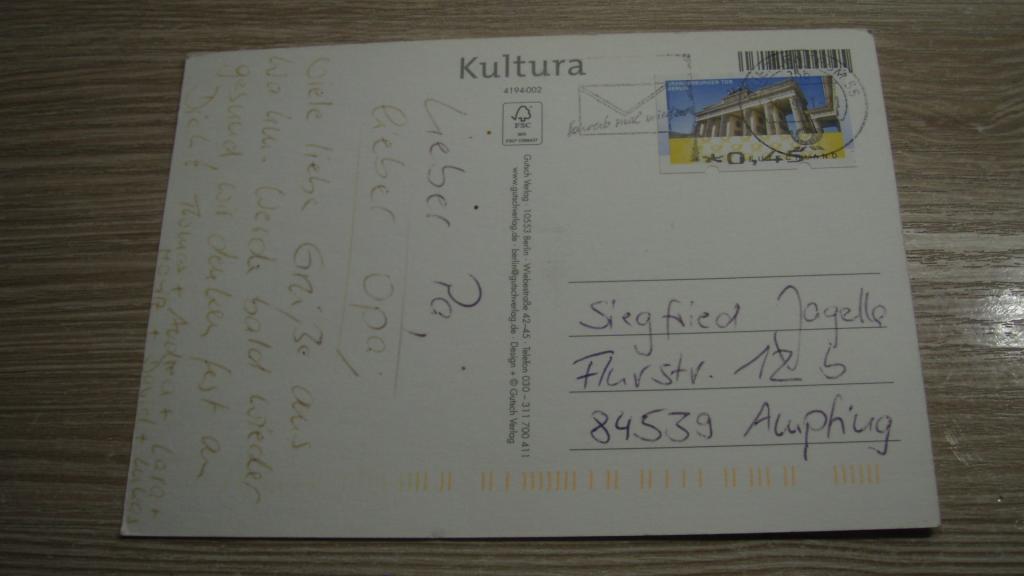 Kultura
4194-002
FSC
Schreib mal wieder
BRANDENBURGER TOR
BERLIN
*0,45
DEUTSCHLAND
Gutsch Verlag · 10553 Berlin · Wiebestraße 42-45 · Telefon 030 – 311 700 411
www.gutschverlag.de · berlin@gutschverlag.de Design + © Gutsch Verlag
Lieber Pa,
lieber Opa
Viele liebe Grüße aus
Werde bald wieder
gesund, wir denken fest an
Dich! Thomas + Andrea + Lara +
Siegfried Jagella
Flurstr. 12 b
84539 Ampfing